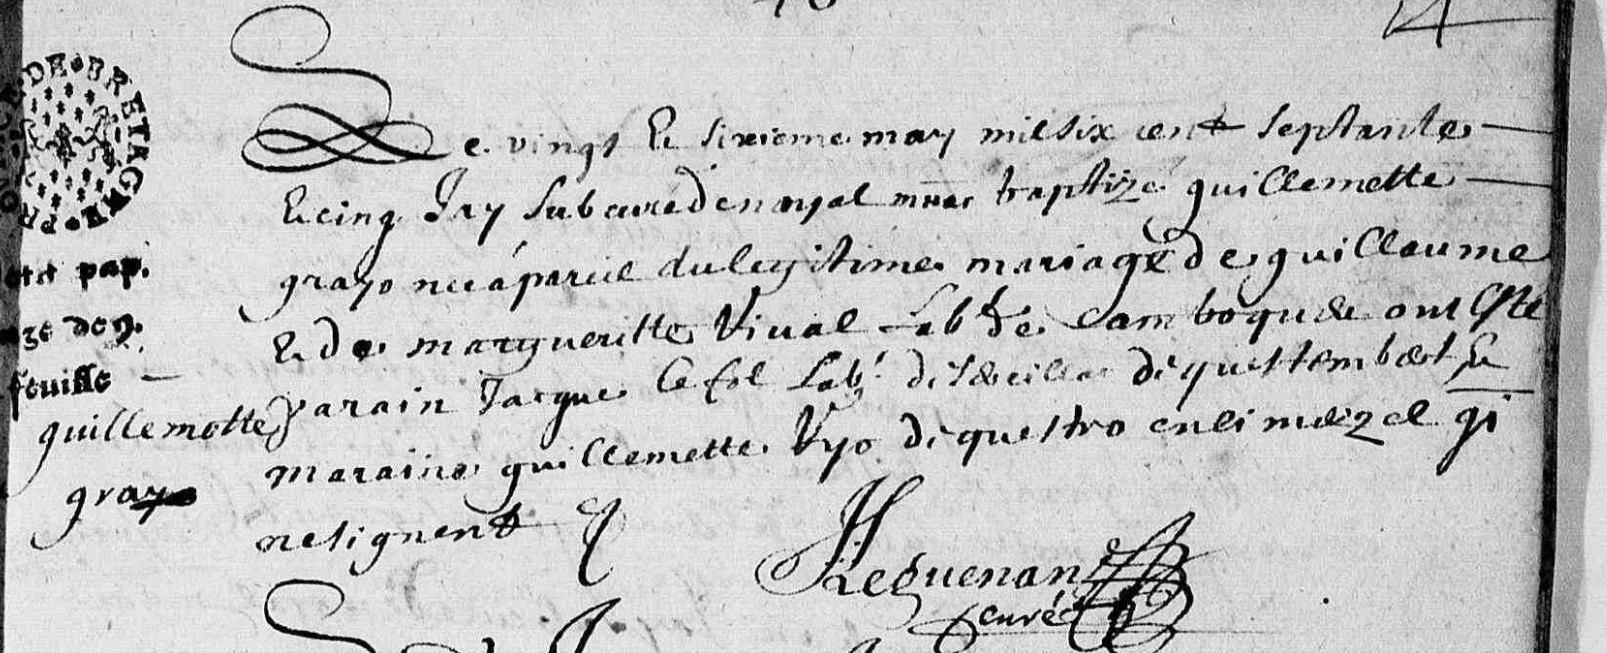 DE BRETAGNE
pap.
de 9.
feuille
guillemette
grayo
Le vingt & sixieme may mil six cent septante
& cinq Jay Subcure de noyal muzr baptize guillemette
grayo nee a parcie du legitime mariage de guillaume
& de margueritte Vival Labrs de Lamboquae ont Este
parain Jacque le fol Labr de de questembert &
maraine guillemette Uyo de questro en limuizel qi
ne signent
H Leguenan
curé